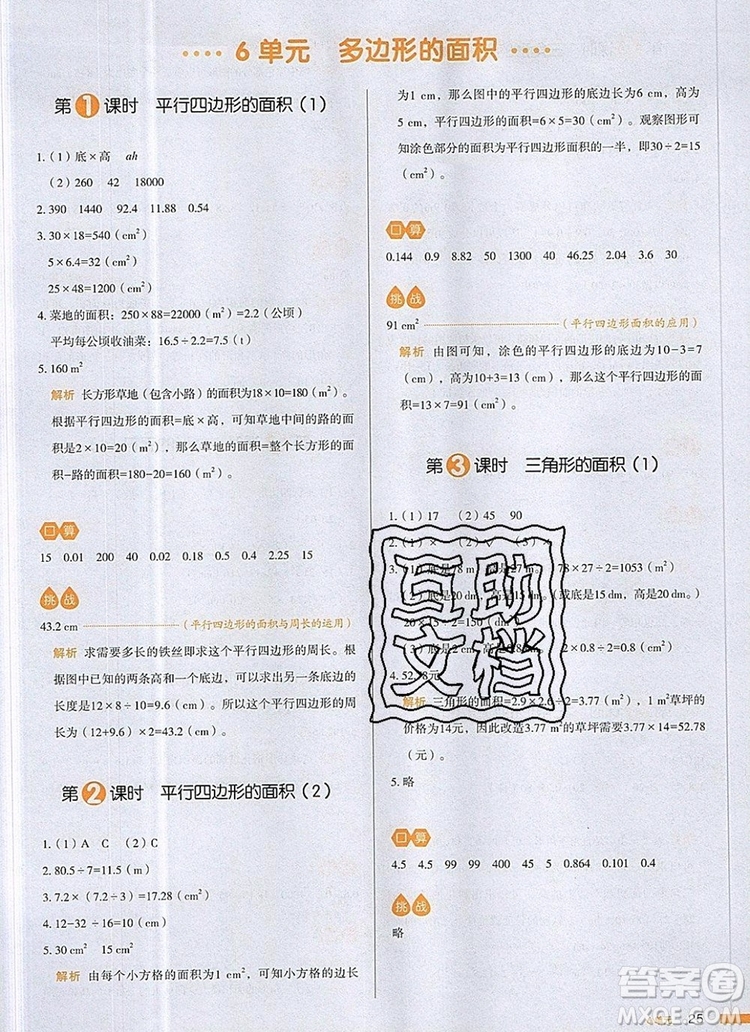 6 单元 多边形的面积
第1课时 平行四边形的面积（1）
1.（1）底×高 ah
（2）260 42 18000
2. 390 1440 92.4 11.88 0.54
3. 30×18=540（cm²）
5×6.4=32（cm²）
25×48=1200（cm²）
4. 菜地的面积：250×88=22000（m²）=2.2（公顷）
平均每公顷收油菜：16.5÷2.2=7.5（吨）
5. 160 m²
解析 长方形草地（包含小路）的面积为18×10=180（m²）。
根据平行四边形的面积=底×高，可知草地中间的路的面
积是2×10=20（m²），那么草地的面积=整个长方形的面
积-路的面积=180-20=160（m²）。
口算
15 0.01 200 40 0.02 0.18 0.4 2.25 15
挑战
43.2 cm （平行四边形的面积与周长的运用）
解析 求需要多长的铁丝即求这个平行四边形的周长。根
据图中已知的两条高和一个底边，可知另一个底边的长
度是12×8÷10=9.6（cm）。所以这个平行四边形的周
长为（12+9.6）×2=43.2（cm）。
第2课时 平行四边形的面积（2）
1.（1）A C （2）C
2. 80.5÷7=11.5（m）
3. 7.2×（7.2÷3）=17.28（cm²）
4. 12-32÷16=10（cm）
5. 30 cm² 15 cm²
解析 由每个小方格的面积为1 cm²，可知小方格的边长
为1 cm，那么图中的平行四边形的底边长为6 cm，高为
5 cm，平行四边形的面积=6×5=30（cm²）。观察图形可
知涂色部分的面积是平行四边形面积的一半，即30÷2=15
（cm²）。
口算
0.144 0.9 8.82 50 1300 40 46.25 2.04 3.6 30
挑战
91 cm² （平行四边形面积的应用）
解析 由图可知，涂色的平行四边形的底边为10-3=7
（cm），高为13 cm，根据平行四边形的面积=底×高，可得
面积=13×7=91（cm²）。
第3课时 三角形的面积（1）
1.（1）17 （2）45 90
2.（1）× （2）√ （3）
3.（1）底是78 m，高是27 m。 78×27÷2=1053（m²）
20 dm，高是15 dm。（或底是15 dm，高是20 dm。）
20×15÷2=150（dm²）
（3）底是2 m，高是0.8 m。 2×0.8÷2=0.8（m²）
4. 52.78元
解析 三角形的面积=2.9×2.6÷2=3.77（m²），1 m²草坪的
价格为14元，因此改造3.77 m²的草坪需要3.77×14=52.78
（元）。
5. 略
口算
4.5 4.5 99 99 400 45 5 0.864 0.101 0.4
挑战
略
互助
文档
答案圈
MXQE.COM
25